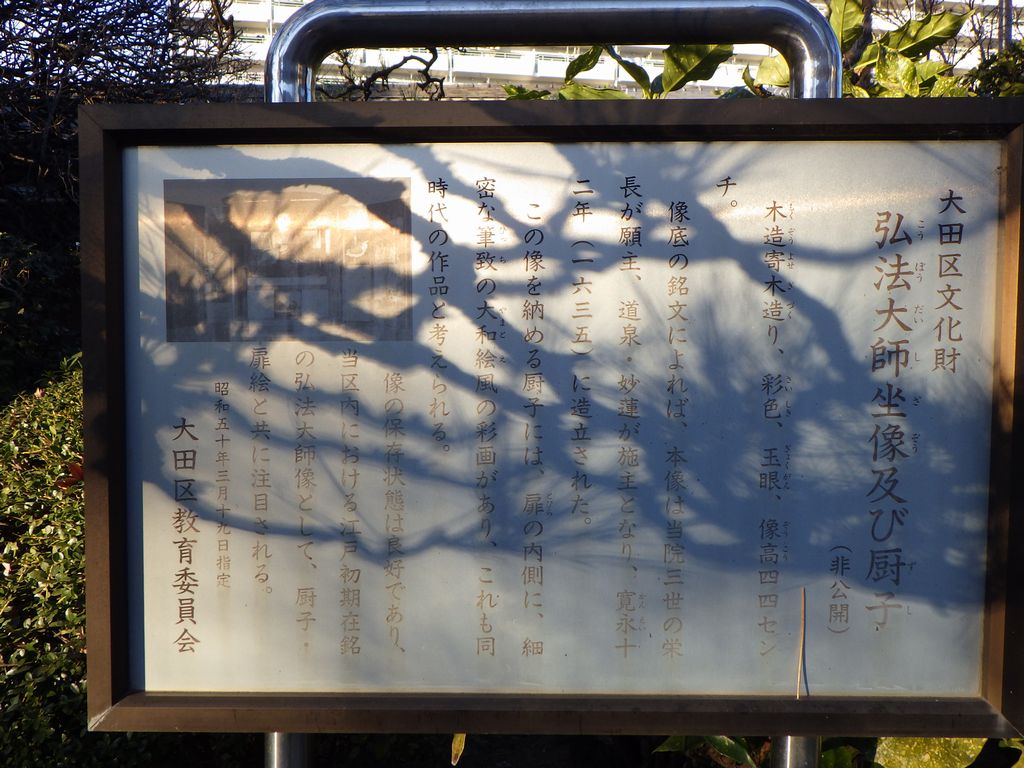 大田区文化財
弘法大師坐像及び厨子
こうぼうだいしざぞう ずし
（非公開）
木造寄木造り、彩色、玉眼、像高四四セン
チ。
像底の銘文によれば、本像は当院三世の栄
長が願主、道泉・妙蓮が施主となり、寛永十
二年（一六三五）に造立された。
この像を納める厨子には、扉の内側に、細
密な筆致の大和絵風の彩画があり、これも同
時代の作品と考えられる。
像の保存状態は良好であり、
当区内における江戸初期在銘
の弘法大師像として、厨子・
扉絵と共に注目される。
昭和五十年三月十九日指定
大田区教育委員会